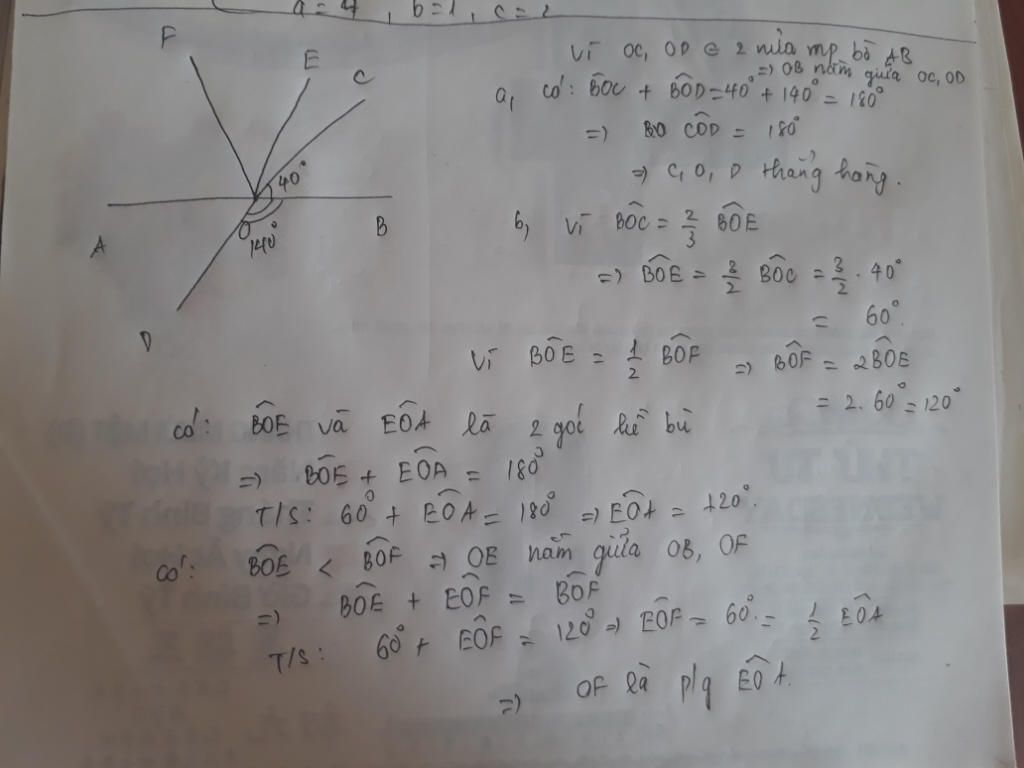 a = 4 , b = 1 , c = 2
F
E
C
40°
A
O
B
140°
D
Vì OC, OD ∈ 2 nửa mp bờ AB
=> OB nằm giữa OC, OD
a, có: BÔC + BÔD = 40° + 140° = 180°
=> BO CÔD = 180°
=> C, O, D thẳng hàng.
b, Vì BÔC = 2/3 BÔE
=> BÔE = 3/2 BÔC = 3/2 . 40°
= 60°.
Vì BÔE = 1/2 BÔF => BÔF = 2BÔE
= 2. 60° = 120°
có: BÔE và EÔA là 2 góc kề bù
=> BÔE + EÔA = 180°
T/S: 60° + EÔA = 180° => EÔA = 120°.
có: BÔE < BÔF => OE nằm giữa OB, OF
=> BÔE + EÔF = BÔF
T/S: 60° + EÔF = 120° => EÔF = 60° = 1/2 EÔA
=> OF là p/g EÔA.